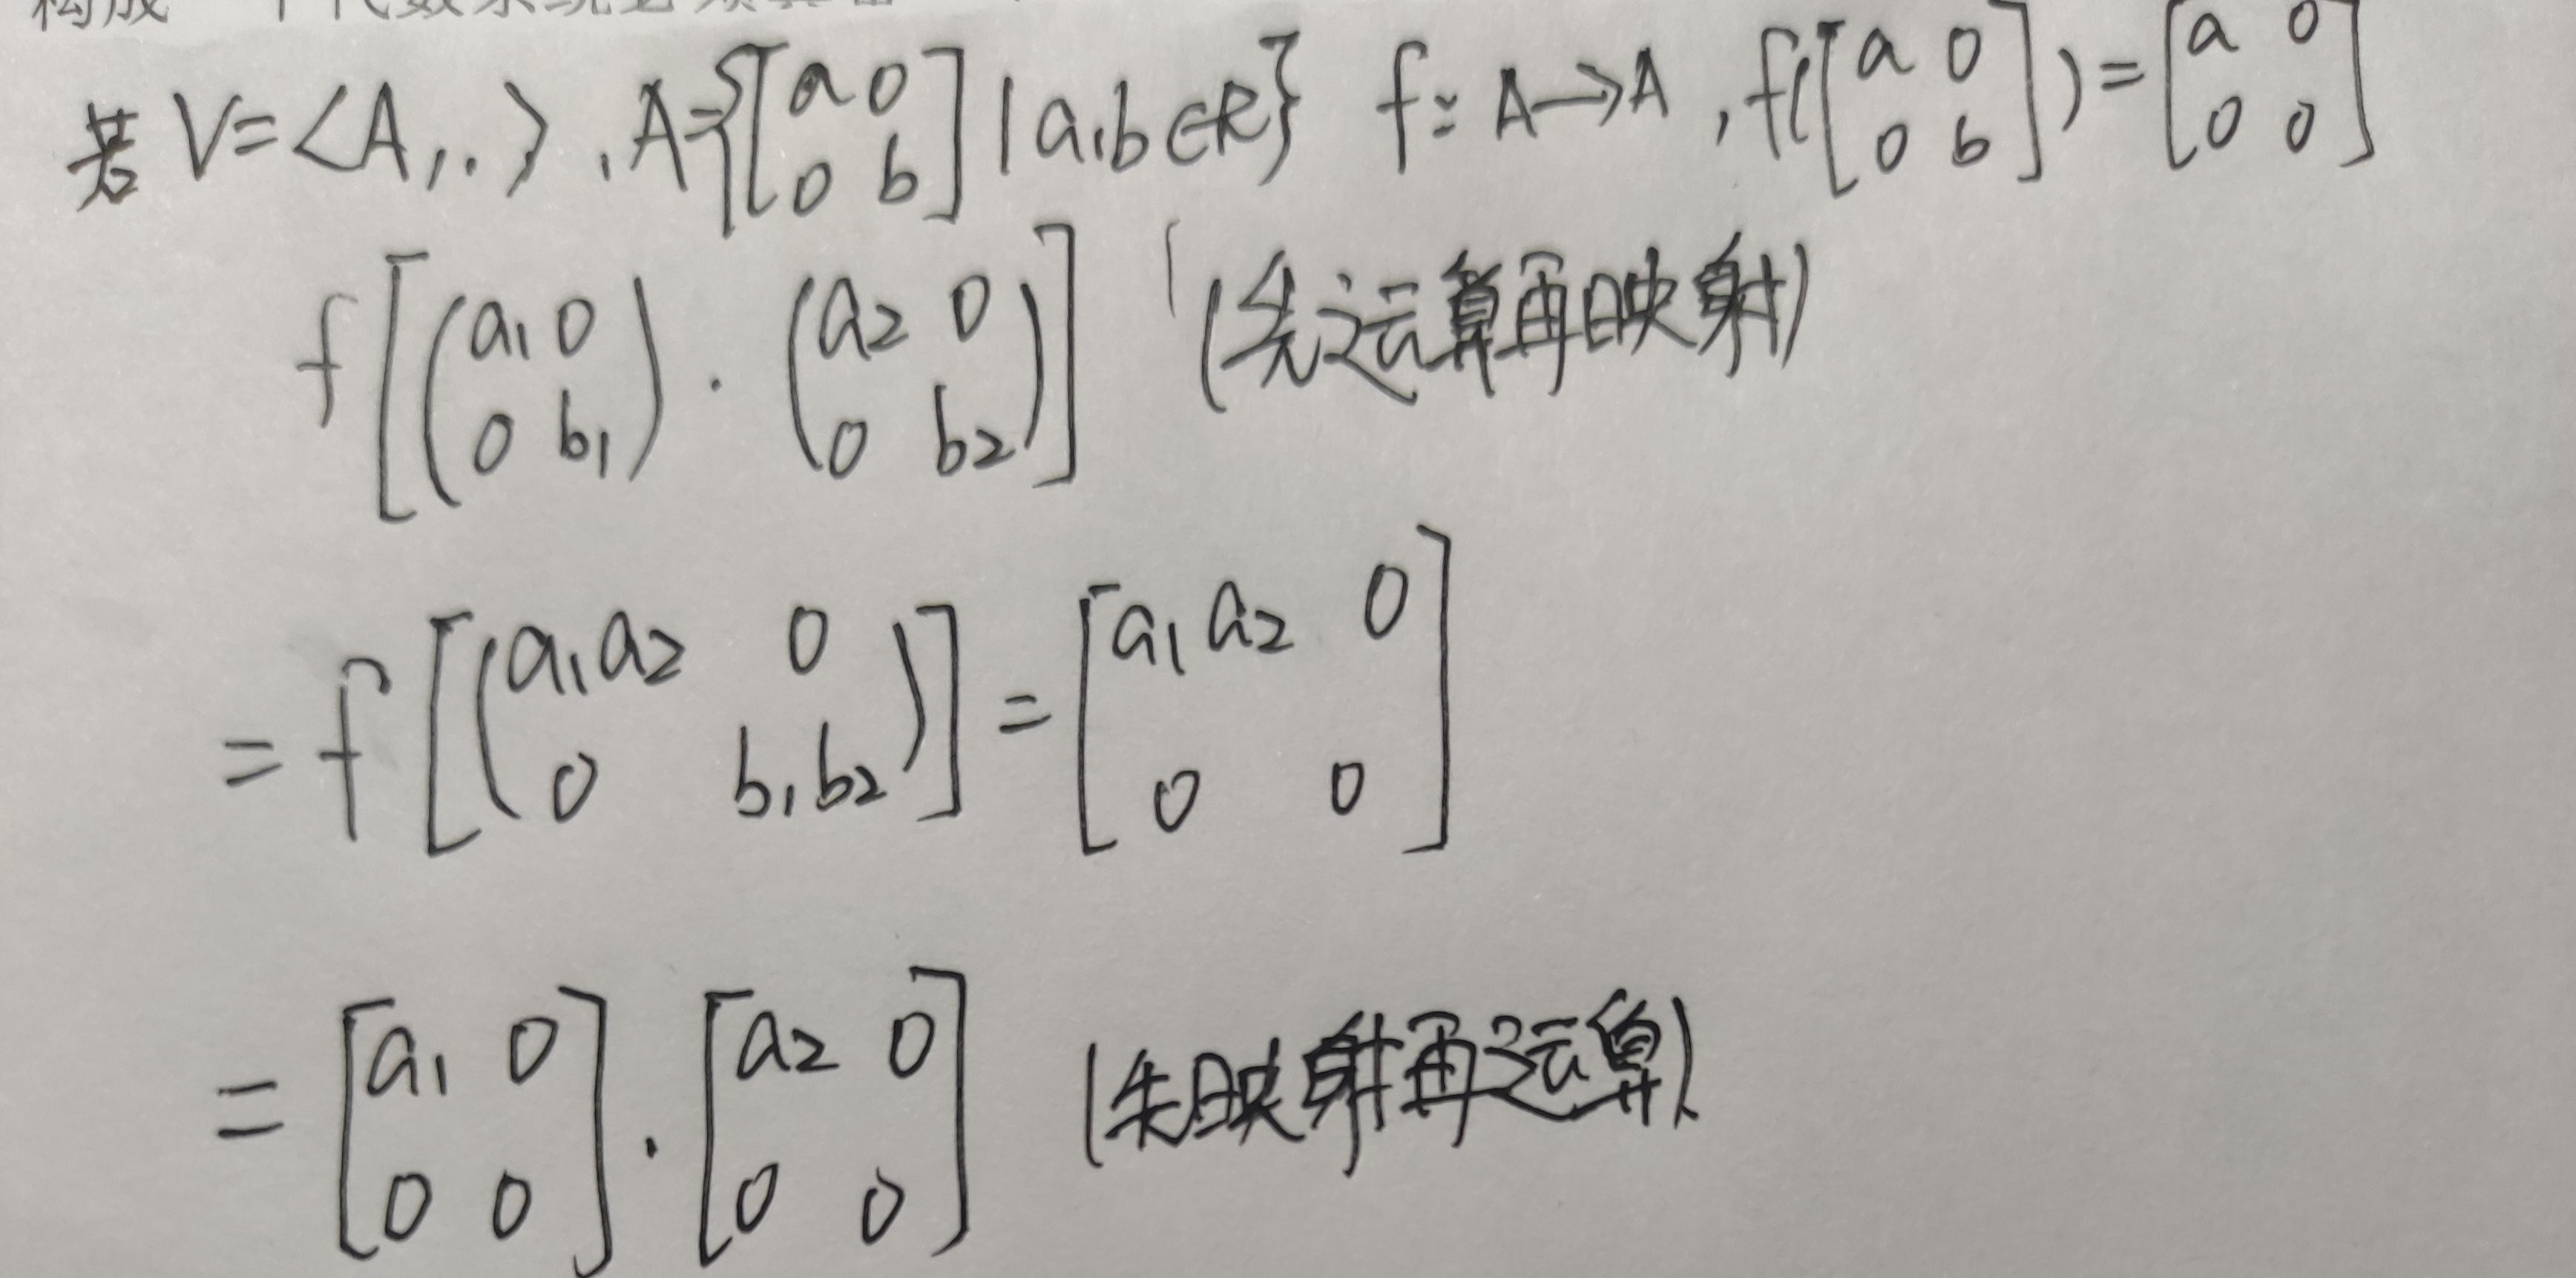 构成一个代数系统必须具备
若 V=<A,·>, A={[a 0; 0 b] | a,b∈R} f: A→A, f([a 0; 0 b])=[a 0; 0 0]
f[(a₁ 0; 0 b₁)·(a₂ 0; 0 b₂)] (先运算再映射)
=f[(a₁a₂ 0; 0 b₁b₂)]=[a₁a₂ 0; 0 0]
=[a₁ 0; 0 0]·[a₂ 0; 0 0] (先映射再运算)